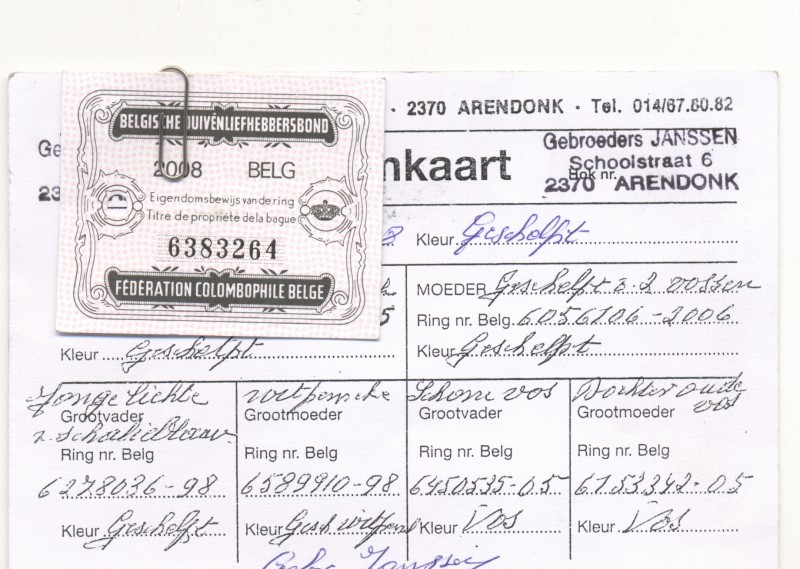 · 2370 ARENDONK · Tel. 014/67.80.82
BELGISCHE DUIVENLIEFHEBBERSBOND
2008 BELG
Eigendomsbewijs van de ring
Titre de propriété de la bague
6383264
FÉDÉRATION COLOMBOPHILE BELGE
Ge
23
nkaart
Gebroeders JANSSEN
Schoolstraat 6
Hok nr.
2370 ARENDONK
Kleur Geschelpt
MOEDER Geschelpt
Ring nr. Belg. 6056106-2006
Kleur Geschelpt
5
Kleur Geschelpt
Jonge lichte
Grootvader
Ring nr. Belg
6278036-98
Kleur Geschelpt
witpenneke
Grootmoeder
Ring nr. Belg
6589910-98
Kleur Gesch witpen
Schone vos
Grootvader
Ring nr. Belg
6450535-05
Kleur Vos
Dochter oude
vos
Grootmoeder
Ring nr. Belg
6153342-05
Kleur Vos